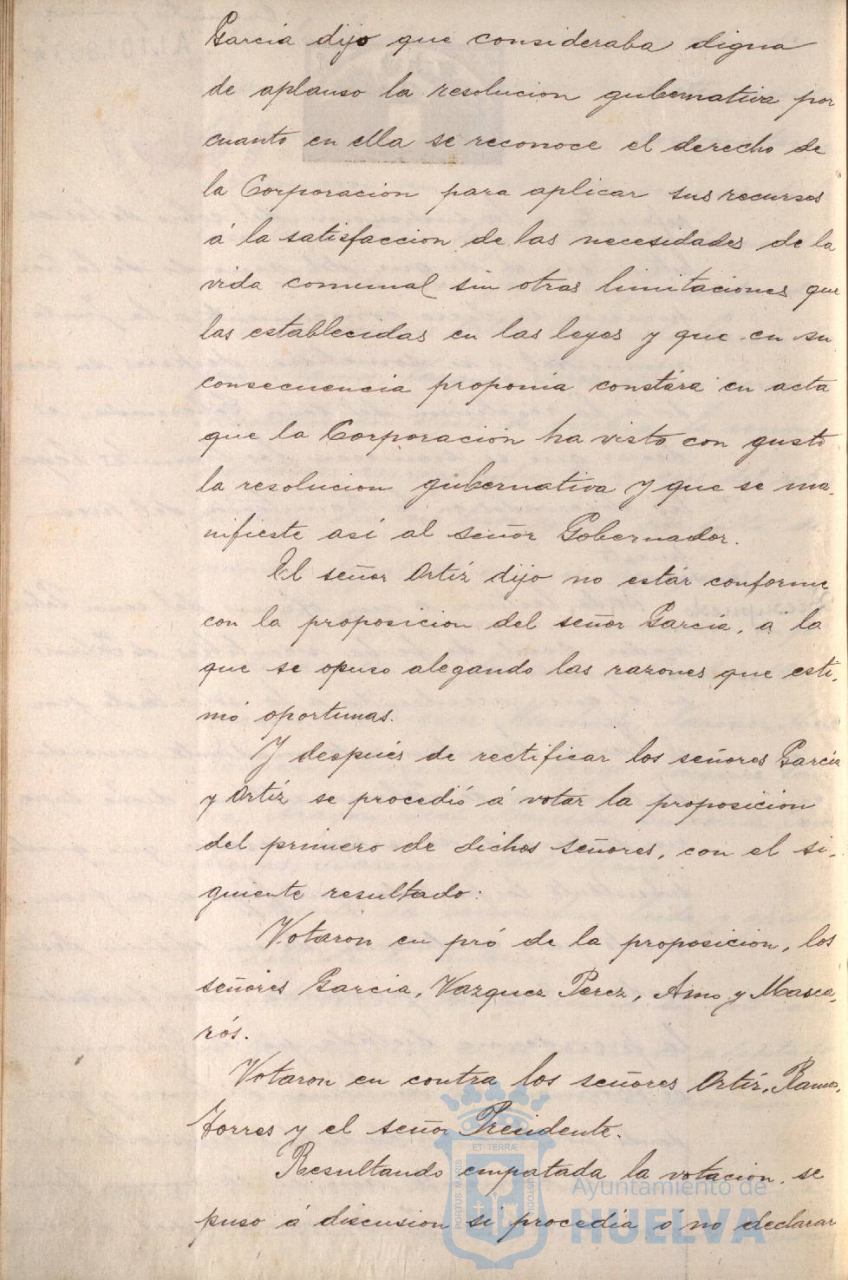 García dijo que consideraba digna
de aplauso la resolucion gubernativa por
cuanto en ella se reconoce el derecho de
la Corporación para aplicar sus recursos
á la satisfaccion de las necesidades de la
vida comunal sin otras limitaciones que
las establecidas en las leyes y que en su
consecuencia proponia constára en acta
que la Corporación ha visto con gusto
la resolucion gubernativa y que se ma-
nifieste así al señor Gobernador.
El señor Ortíz dijo no estár conforme
con la proposicion del señor García, á la
que se opuso alegando las razones que esti-
mó oportunas.
Y después de rectificar los señores García
y Ortíz se procedió á votar la proposicion
del primero de dichos señores, con el si-
guiente resultado:
Votaron en pró de la proposicion, los
señores García, Vazquez Perez, Amo y Masca-
rós.
Votaron en contra los señores Ortíz,
Torres y el señor Presidente.
Resultando empatada la votacion, se
puso á discusion si procedía ó no declarar
ET TERRÆ
PORTUS MARIS
CUSTODIA
Ayuntamiento de
HUELVA